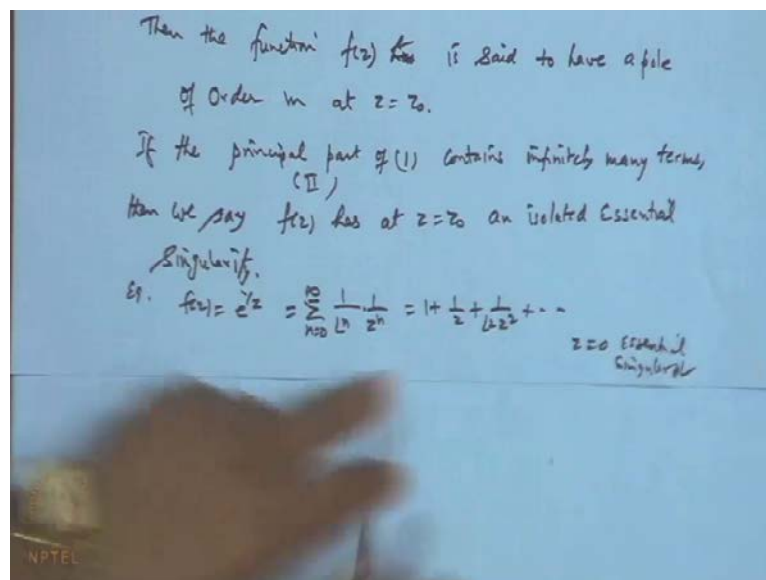 Then the function f(z) is said to have a pole
of Order m at z = z₀.
If the principal part of (1) contains infinitely many terms,
(II)
then we say f(z) has at z = z₀ an isolated Essential
Singularity.
Eg. f(z) = e^{1/z} = ∑_{n=0}^{∞} 1/⌊n · 1/zⁿ = 1 + 1/z + 1/⌊2 z² + - -
z=0 Essential
Singularity
NPTEL